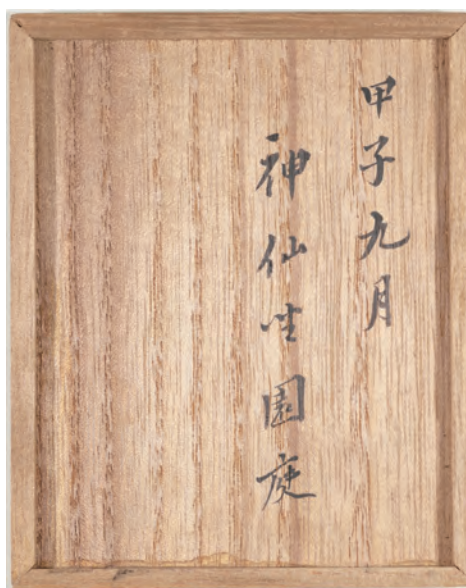 甲子九月
神仙坐園庭